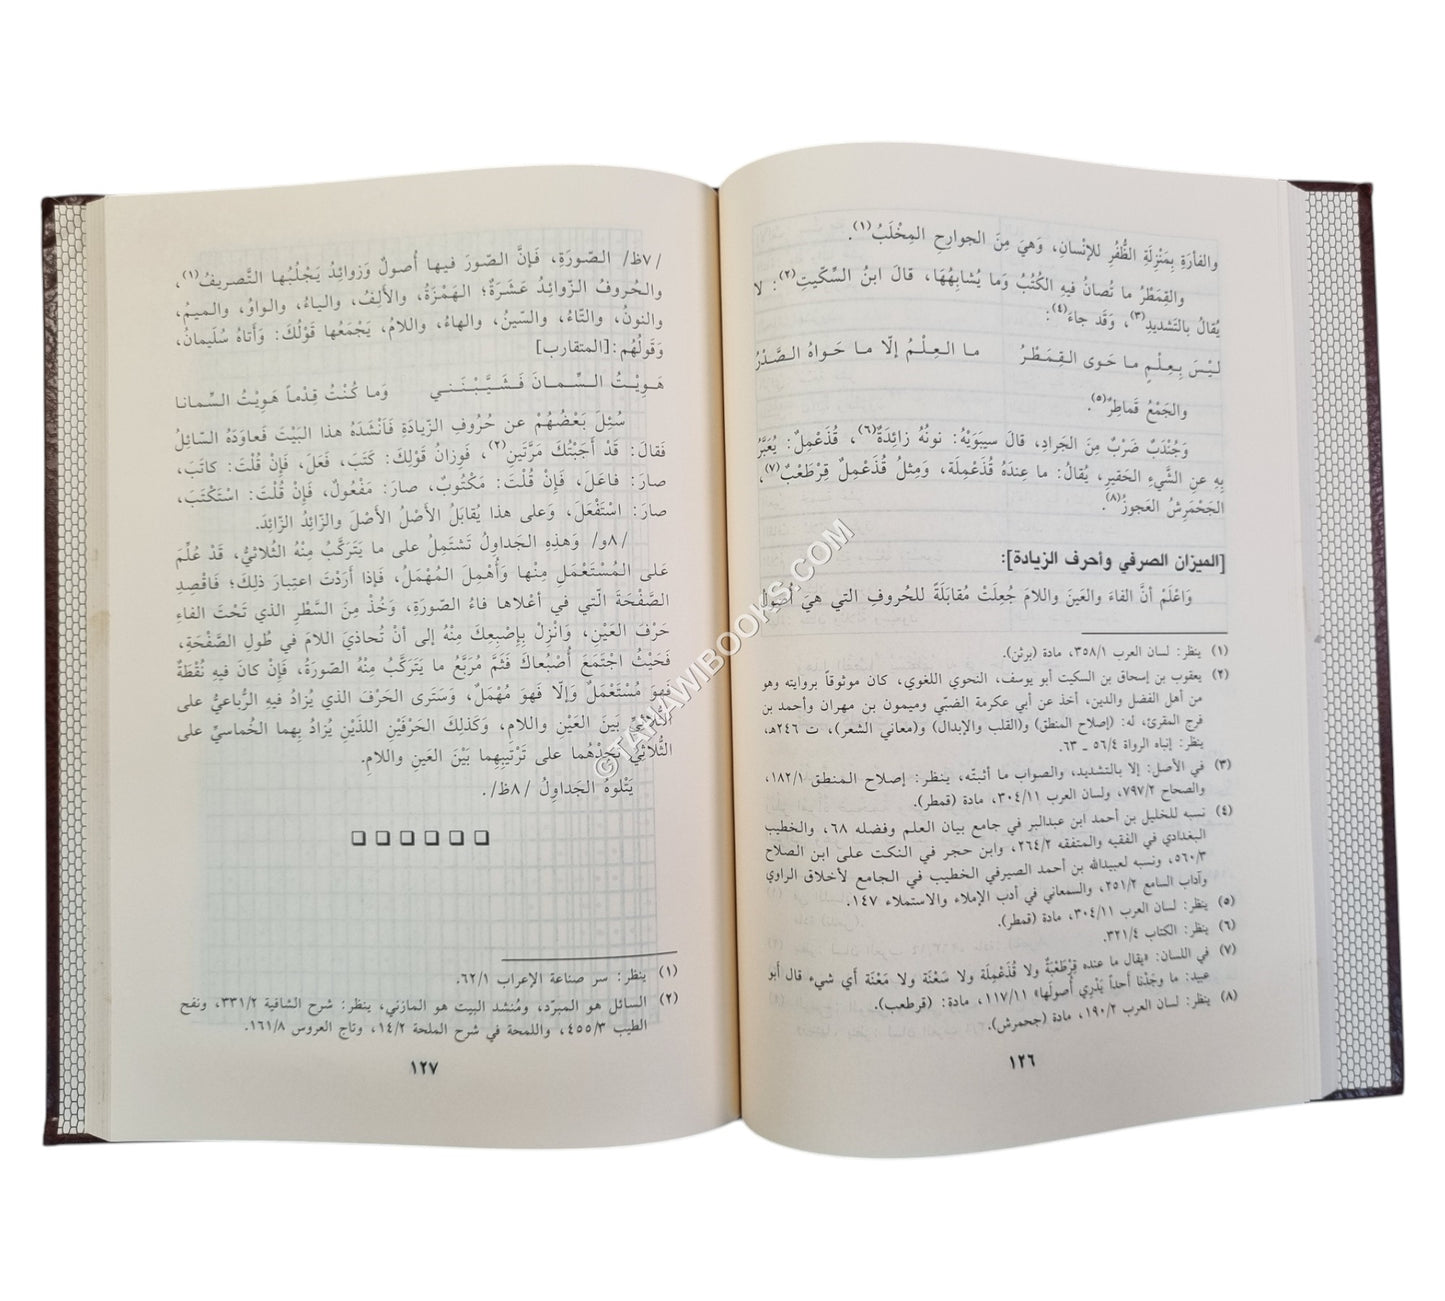 والفأرَةِ بِمَنْزِلَةِ الظُّفُرِ للإنْسانِ، وَهيَ مِنَ الجوارِحِ المِخْلَبُ(١).
والقِمَطْرُ ما تُصانُ فيهِ الكُتُبُ وَما يُشابِهُهَا، قالَ ابنُ السِّكّيتِ(٢): لا
يُقالُ بالتَشديدِ(٣)، وَقَد جاءَ(٤):
ليْسَ بِعِلْمٍ ما حَوى القِمَطْرُ ما العِلْمُ إلّا ما حَواهُ الصَّدْرُ
والجَمْعُ قَماطِرُ(٥).
وَجُنْدَبٌ ضَرْبٌ مِنَ الجَرادِ، قالَ سيبَوَيْهُ: نونُهُ زائِدَةٌ(٦)، قُذَعْمِلٌ: يُعَبَّرُ
بِهِ عنِ الشَّيءِ الحَقيرِ، يُقالُ: ما عِندَهُ قُذَعْمِلَة، وَمِثلُ قُذَعْمِلٍ قِرْطَعْبٌ(٧)،
الجَحْمَرِشُ العَجوزُ(٨).
[الميزان الصرفي وأحرف الزيادة]:
وَاعْلَمْ أنَّ الفاءَ والعَينَ واللامَ جُعِلَتْ مُقابَلَةً للحُروفِ التي هيَ أُصولُ
(١) ينظر: لسان العرب ٣٥٨/١، مادة (برثن).
(٢) يعقوب بن إسحاق بن السكيت أبو يوسف، النحوي اللغوي، كان موثوقاً بروايته وهو
من أهل الفضل والدين، أخذ عن أبي عكرمة الضبّي وميمون بن مهران وأحمد بن
فرج المقرئ، له: (إصلاح المنطق) و(القلب والإبدال) و(معاني الشعر)، ت ٢٤٦هـ،
ينظر: إنباه الرواة ٥٦/٤ ـ ٦٣.
(٣) في الأصل: إلا بالتشديد، والصواب ما أثبتّه، ينظر: إصلاح المنطق ١٨٢/١،
والصحاح ٧٩٧/٢، ولسان العرب ٣٠٤/١١، مادة (قمطر).
(٤) نسبه للخليل بن أحمد ابن عبدالبر في جامع بيان العلم وفضله ٦٨، والخطيب
البغدادي في الفقيه والمتفقه ٢٦٤/٢، وابن حجر في النكت على ابن الصلاح
٥٦٠/٣، ونسبه لعبيدالله بن أحمد الصيرفي الخطيب في الجامع لأخلاق الراوي
وآداب السامع ٢٥١/٢، والسمعاني في أدب الإملاء والاستملاء ١٤٧.
(٥) ينظر: لسان العرب ٣٠٤/١١، مادة (قمطر).
(٦) ينظر: الكتاب ٣٢١/٤.
(٧) في اللسان: «يقال ما عنده قِرْطَعْبَةٌ ولا قُذَعْمِلَة ولا سَعْنَة ولا مَعْنَة أي شيء قال أبو
عبيد: ما وجَدْنا أحداً يَدْرِي أُصولَها» ١١٧/١١، مادة: (قرطعب).
(٨) ينظر: لسان العرب ١٩٠/٢، مادة (جحمرش).
١٢٦
/٧ظ/ الصّورَةِ، فَإنَّ الصّورَ فيها أُصولٌ وَزوائِدُ يَجْلُبُها التَّصريفُ(١)،
والحُروفُ الزّوائِدُ عَشَرَةٌ؛ الهَمْزَةُ، والأَلِفُ، والياءُ، والواوُ، والميمُ،
والنونُ، والتّاءُ، والسّينُ، والهاءُ، واللامُ، يَجْمَعُها قَوْلُكَ: وَأَتاهُ سُلَيمانُ،
وَقَولُهُم:[المتقارب]
هَوِيْتُ السِّمانَ فَشَيَّبْنَني وَما كُنْتُ قِدْماً هَوِيْتُ السِّمانا
سُئِلَ بَعْضُهُمْ عن حُروفِ الزّيادَةِ فَأَنْشَدَهُ هذا البَيْتَ فَعاوَدَهُ السّائِلُ
فَقالَ: قَدْ أَجَبْتُكَ مَرَّتَينِ(٢)، فَوِزانُ قَوْلِكَ: كَتَبَ، فَعَلَ، فَإِنْ قُلْتَ: كاتَبَ،
صارَ: فاعَلَ، فَإِنْ قُلْتَ: مَكْتُوبٌ، صارَ: مَفْعُولٌ، فَإِنْ قُلْتَ: اسْتَكْتَبَ،
صارَ: اسْتَفْعَلَ، وَعلى هذا يُقابَلُ الأَصْلُ الأَصْلَ والزّائِدُ الزّائِدَ.
/٨و/ وَهذِهِ الجَداوِلُ تَشتَمِلُ على ما يَتَرَكَّبُ مِنْهُ الثُلاثيُّ، قَدْ عُلِّمَ
عَلى المُسْتَعْمَلِ مِنْها وَأُهْمِلَ المُهْمَلُ، فَإِذا أَرَدْتَ اعتِبارَ ذلِكَ؛ فَاقْصِدِ
الصَّفْحَةَ الّتي في أعْلاها فاءُ الصّورَةِ، وَخُذْ مِنَ السَّطْرِ الذي تَحْتَ الفاءِ
حَرْفَ العَيْنِ، وَانْزِلْ بِإصْبِعِكَ مِنْهُ إلى أنْ تُحاذيَ اللامَ في طُولِ الصَّفْحَةِ،
فَحَيْثُ اجْتَمَعَ أُصْبُعاكَ فَثَمَّ مُرَبَّعُ ما يَتَرَكَّبُ مِنْهُ الصّورَةُ، فَإِنْ كانَ فيهِ نُقْطَةٌ
فَهوَ مُسْتَعْمَلٌ وَإلّا فَهوَ مُهْمَلٌ، وَسَتَرى الحَرْفَ الذي يُزادُ فيهِ الرُباعيُّ على
الثُّلاثيِّ بَينَ العَيْنِ واللامِ، وَكَذلِكَ الحَرْفَيْنِ اللذَيْنِ يُزادُ بِهِما الخُماسيِّ على
الثُّلاثيِّ تَجِدْهُما على تَرْتيبِهِما بَيْنَ العَينِ واللامِ.
يَتْلوهُ الجَداوِلُ /٨ظ/.
(١) ينظر: سر صناعة الإعراب ٦٢/١.
(٢) السائل هو المبرّد، ومُنشد البيت هو المازني، ينظر: شرح الشافية ٣٣١/٢، ونفح
الطيب ٤٥٥/٣، واللمحة في شرح الملحة ١٤/٢، وتاج العروس ١٦١/٨.
١٢٧
© TAHAWIBOOKS.COM